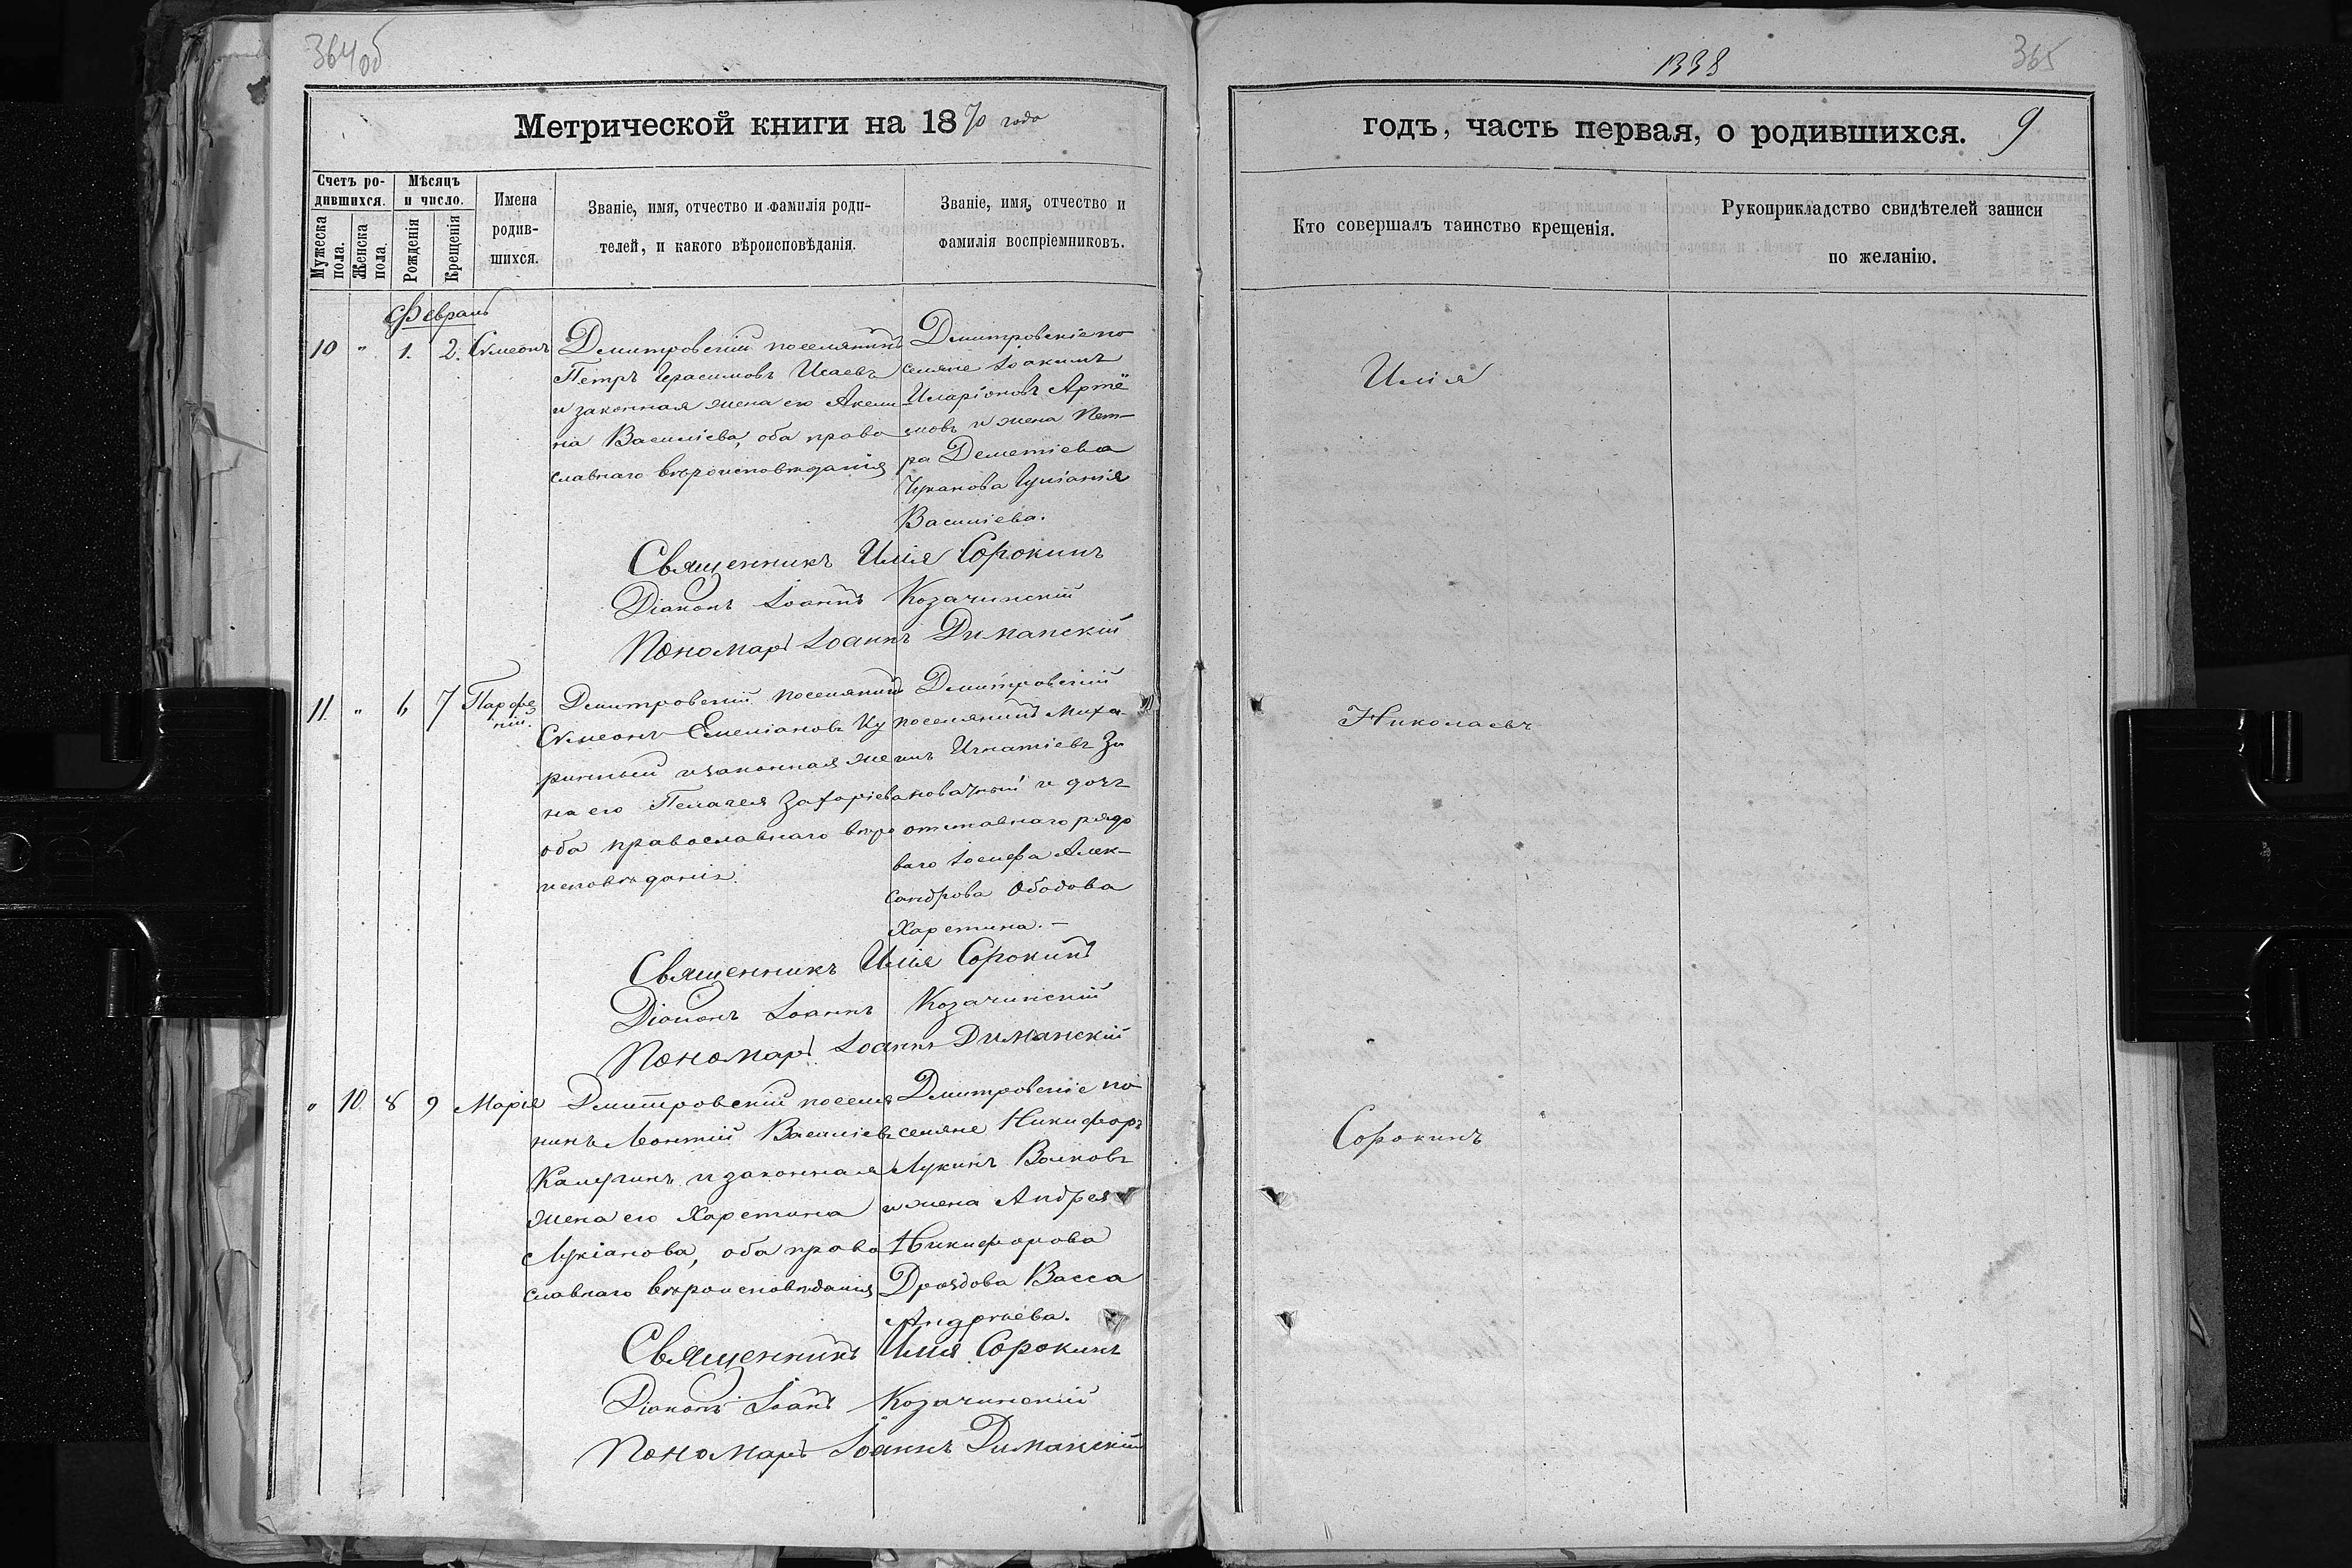 364об
Метрической книги на 1870 года
Счетъ ро-
дившихся.
Мужеска
пола.
Женска
пола.
Мѣсяцъ
и число.
Рожденія
Крещенія
Имена
родив-
шихся.
Званіе, имя, отчество и фамилія роди-
телей, и какого вѣроисповѣданія.
Званіе, имя, отчество и
фамилія воспріемниковъ.
Февраль
10 " 1. 2. Сѵмеонъ
Дмитровскій поселянинъ
Петръ Герасимовъ Исаевъ
и законная жена его Акели
на Василіева, оба право
славнаго вѣроисповѣданія
Дмитровскіе по
селяне Іоакимъ
Иларіоновъ Артё
мовъ и жена Пет-
ра Деметіева
Чуканова Іуліанія
Василіева.
Священникъ Илія Сорокинъ
Діаконъ Іоаннъ Козачинскій
Пономарь Іоаннъ Диманскій
11. " 6 7 Парфе
ній.
Дмитровскій поселянинъ
Сѵмеонъ Емеліановъ Ку
ринный и законная же
на его Пелагея Захаріева
оба православнаго вѣро
исповѣданія.
Дмитровскій
поселянинъ Миха-
илъ Игнатіевъ За
и дочь
отставнаго рядо
ваго Іосифа Алек-
сандрова Ободова
Харетина.-
Священникъ Илія Сорокинъ
Діаконъ Іоаннъ Козачинскій
Пономарь Іоаннъ Диманскій
" 10. 8 9 Марія
Дмитровскій поселя
нинъ Леонтій Василіевъ
Калугинъ и законная
жена его Харетина
Лукіанова, оба право
славнаго вѣроисповѣданія
Дмитровскіе по
селяне Никифоръ
Лукинъ Волковъ
и жена Андрея
Никифорова
Дроздова Васса
Андреева.
Священникъ Илія Сорокинъ
Діаконъ Іоанъ Козачинскій
Пономарь Іоаннъ Диманскій
1338
365
годъ, часть первая, о родившихся. 9
Кто совершалъ таинство крещенія.
Рукоприкладство свидѣтелей записи
по желанію.
Илія
Николаевъ
Сорокинъ